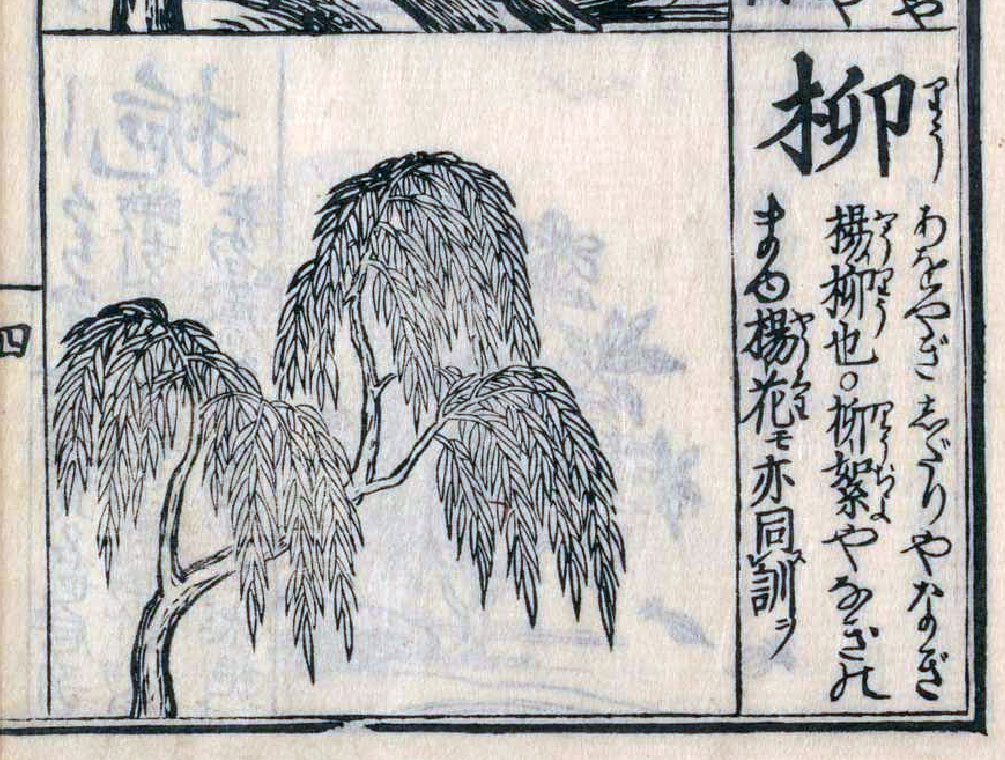 柳 りう
あをやぎ しだりやなぎ
楊柳也。柳絮やなぎの
楊花モ亦同訓
四